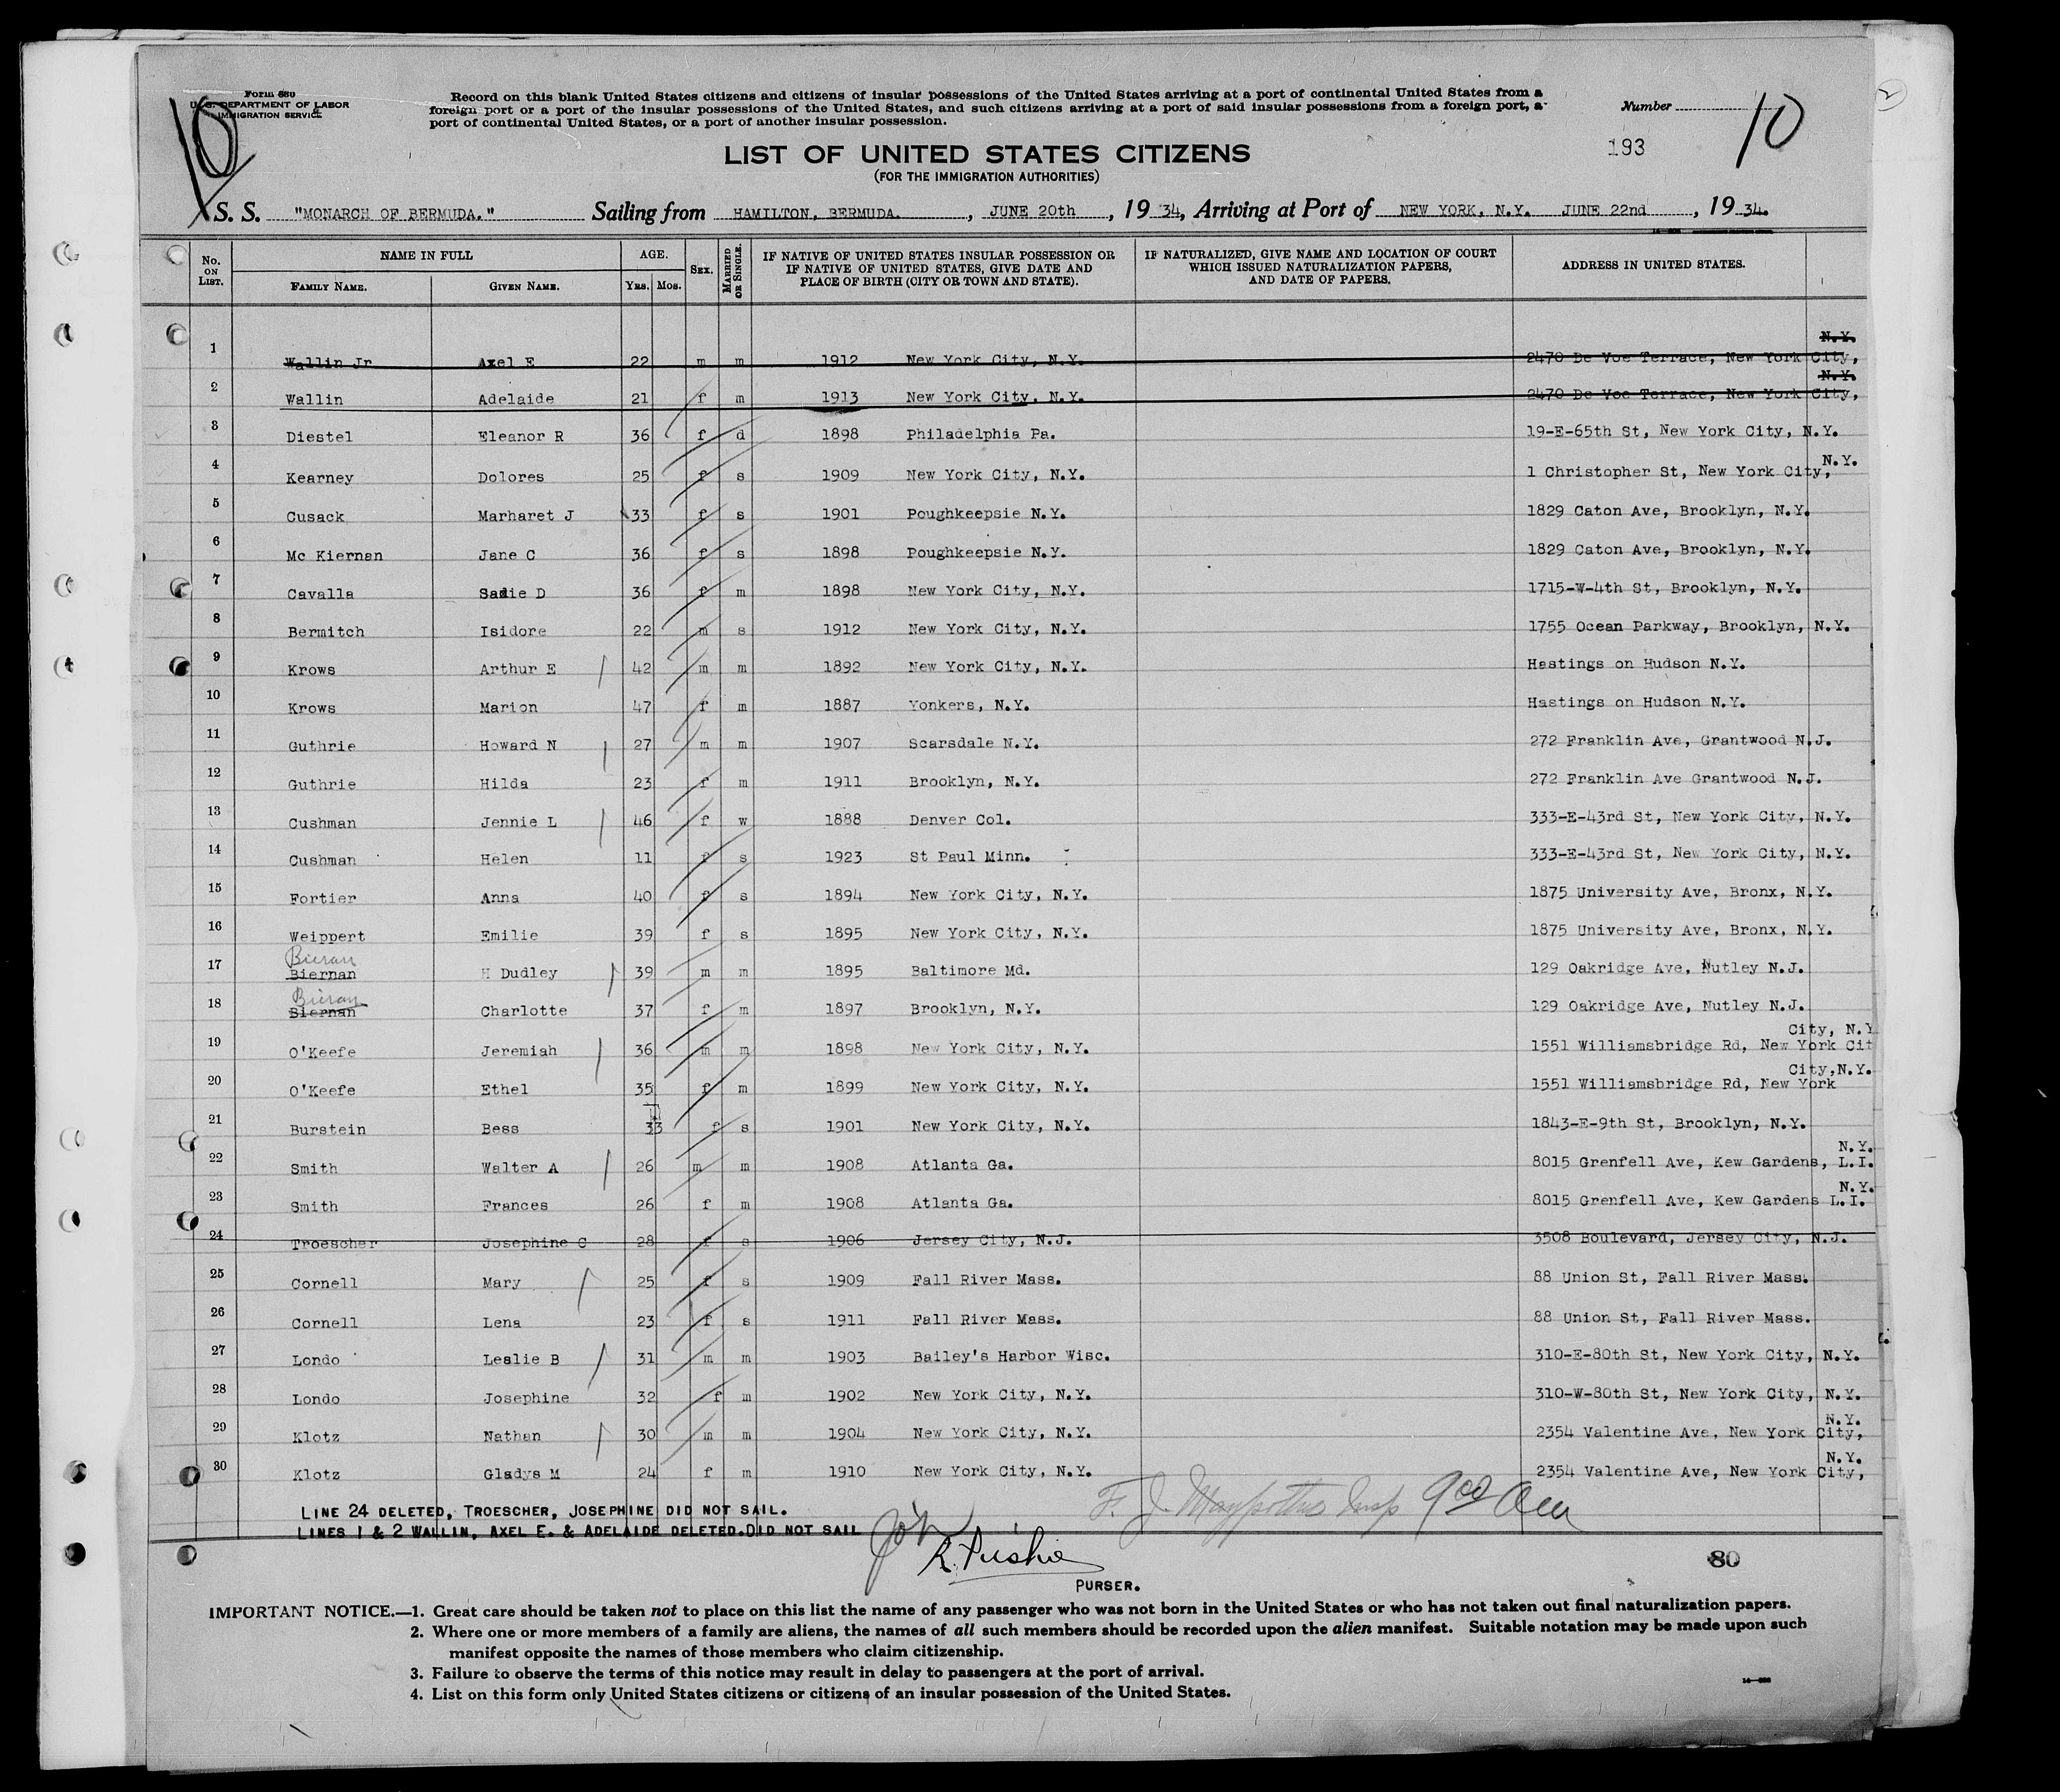 Form 630
U. S. DEPARTMENT OF LABOR
IMMIGRATION SERVICE
10
Record on this blank United States citizens and citizens of insular possessions of the United States arriving at a port of continental United States from a
foreign port or a port of the insular possessions of the United States, and such citizens arriving at a port of said insular possessions from a foreign port, a
port of continental United States, or a port of another insular possession.
Number
10
2
193
LIST OF UNITED STATES CITIZENS
(FOR THE IMMIGRATION AUTHORITIES)
S. S. "MONARCH OF BERMUDA." Sailing from HAMILTON, BERMUDA. , JUNE 20th , 19 34, Arriving at Port of NEW YORK, N.Y. JUNE 22nd , 19 34.
No. ON LIST. NAME IN FULL FAMILY NAME. GIVEN NAME. AGE. YRS. MOS. SEX. MARRIED OR SINGLE. IF NATIVE OF UNITED STATES INSULAR POSSESSION OR IF NATIVE OF UNITED STATES, GIVE DATE AND PLACE OF BIRTH (CITY OR TOWN AND STATE). IF NATURALIZED, GIVE NAME AND LOCATION OF COURT WHICH ISSUED NATURALIZATION PAPERS, AND DATE OF PAPERS. ADDRESS IN UNITED STATES.
1 Wallin Jr Axel E 22 m m 1912 New York City, N.Y. 2470 De Voe Terrace, New York City, N.Y.
2 Wallin Adelaide 21 f m 1913 New York City, N.Y. 2470 De Voe Terrace, New York City, N.Y.
3 Diestel Eleanor R 36 f d 1898 Philadelphia Pa. 19-E-65th St, New York City, N.Y.
4 Kearney Dolores 25 f s 1909 New York City, N.Y. 1 Christopher St, New York City, N.Y.
5 Cusack Marharet J 33 f s 1901 Poughkeepsie N.Y. 1829 Caton Ave, Brooklyn, N.Y.
6 Mc Kiernan Jane C 36 f s 1898 Poughkeepsie N.Y. 1829 Caton Ave, Brooklyn, N.Y.
7 Cavalla Sadie D 36 f m 1898 New York City, N.Y. 1715-W-4th St, Brooklyn, N.Y.
8 Bermitch Isidore 22 m s 1912 New York City, N.Y. 1755 Ocean Parkway, Brooklyn, N.Y.
9 Krows Arthur E 42 m m 1892 New York City, N.Y. Hastings on Hudson N.Y.
10 Krows Marion 47 f m 1887 Yonkers, N.Y. Hastings on Hudson N.Y.
11 Guthrie Howard N 27 m m 1907 Scarsdale N.Y. 272 Franklin Ave, Grantwood N.J.
12 Guthrie Hilda 23 f m 1911 Brooklyn, N.Y. 272 Franklin Ave Grantwood N.J.
13 Cushman Jennie L 46 f w 1888 Denver Col. 333-E-43rd St, New York City, N.Y.
14 Cushman Helen 11 f s 1923 St Paul Minn. 333-E-43rd St, New York City, N.Y.
15 Fortier Anna 40 f s 1894 New York City, N.Y. 1875 University Ave, Bronx, N.Y.
16 Weippert Emilie 39 f s 1895 New York City, N.Y. 1875 University Ave, Bronx, N.Y.
Bieran
17 Biernan H Dudley 39 m m 1895 Baltimore Md. 129 Oakridge Ave, Nutley N.J.
Bieran
18 Biernan Charlotte 37 f m 1897 Brooklyn, N.Y. 129 Oakridge Ave, Nutley N.J.
City, N.Y
19 O'Keefe Jeremiah 36 m m 1898 New York City, N.Y. 1551 Williamsbridge Rd, New York Cit
City,N.Y.
20 O'Keefe Ethel 35 f m 1899 New York City, N.Y. 1551 Williamsbridge Rd, New York
21 Burstein Bess 33 f s 1901 New York City, N.Y. 1843-E-9th St, Brooklyn, N.Y.
N.Y.
22 Smith Walter A 26 m m 1908 Atlanta Ga. 8015 Grenfell Ave, Kew Gardens, L.I.
N.Y.
23 Smith Frances 26 f m 1908 Atlanta Ga. 8015 Grenfell Ave, Kew Gardens L.I.
24 Troescher Josephine C 28 f s 1906 Jersey City, N.J. 3508 Boulevard, Jersey City, N.J.
25 Cornell Mary 25 f s 1909 Fall River Mass. 88 Union St, Fall River Mass.
26 Cornell Lena 23 f s 1911 Fall River Mass. 88 Union St, Fall River Mass.
27 Londo Leslie B 31 m m 1903 Bailey's Harbor Wisc. 310-E-80th St, New York City, N.Y.
28 Londo Josephine 32 f m 1902 New York City, N.Y. 310-W-80th St, New York City, N.Y.
N.Y.
29 Klotz Nathan 30 m m 1904 New York City, N.Y. 2354 Valentine Ave, New York City,
N.Y.
30 Klotz Gladys M 24 f m 1910 New York City, N.Y. 2354 Valentine Ave, New York City,
F. J. Insp 9 00 am
LINE 24 DELETED, TROESCHER, JOSEPHINE DID NOT SAIL.
LINES 1 & 2 WALLIN, AXEL E. & ADELAIDE DELETED.DID NOT SAIL
80
PURSER.
IMPORTANT NOTICE.—1. Great care should be taken not to place on this list the name of any passenger who was not born in the United States or who has not taken out final naturalization papers.
2. Where one or more members of a family are aliens, the names of all such members should be recorded upon the alien manifest. Suitable notation may be made upon such
manifest opposite the names of those members who claim citizenship.
3. Failure to observe the terms of this notice may result in delay to passengers at the port of arrival.
4. List on this form only United States citizens or citizens of an insular possession of the United States.